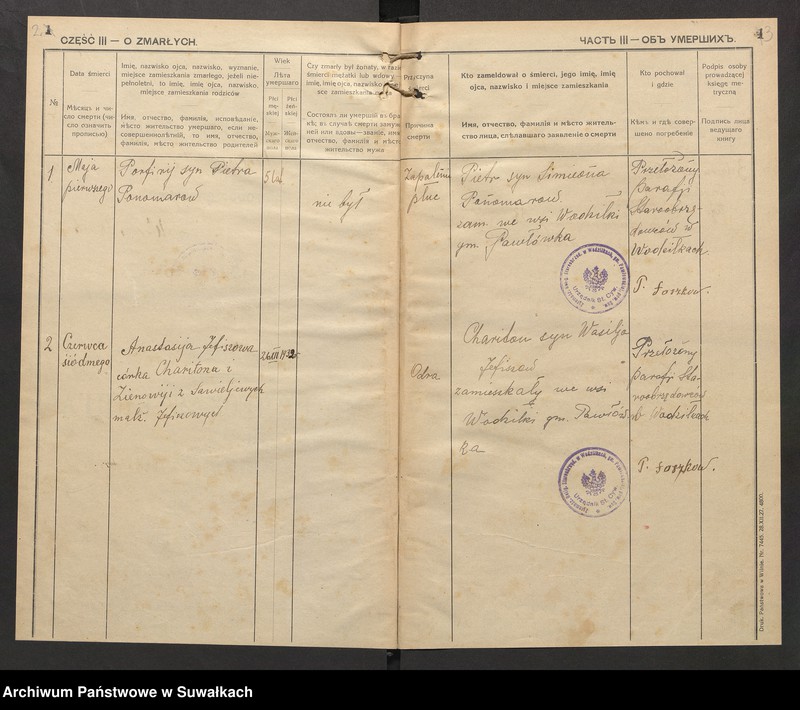 1
CZĘŚĆ III — O ZMARŁYCH.
ЧАСТЬ III — ОБЪ УМЕРШИХЪ.
№
Data śmierci
Мѣсяцъ и число смерти (число означить прописью)
Imię, nazwisko ojca, nazwisko, wyznanie,
miejsce zamieszkania zmarłego, jeżeli nie-
pełnoletni, to imię, imię ojca, nazwisko,
miejsce zamieszkania rodziców
Имя, отчество, фамилія, исповѣданіе,
мѣсто жительство умершаго, если не-
совершеннолѣтній, то имя, отчество,
фамилія, мѣсто жительство родителей
Wiek
Лѣта
умершаго
Płci mę-skiej
Płci żeń-skiej
Муж-
Жен-
Czy zmarły był żonaty, w razie
śmierci mężatki lub wdowy —
imię, imię ojca, nazwisko
zamieszkania
Состоялъ ли умершій въ бра-
кѣ; въ случаѣ смерти замуж-
ней или вдовы — званіе, имя,
отчество, фамилія и мѣсто
жительство мужа
Przyczyna
śmierci
Причина
смерти
Kto zameldował o śmierci, jego imię, imię
ojca, nazwisko i miejsce zamieszkania
Имя, отчество, фамилія и мѣсто житель-
ство лица, сдѣлавшаго заявленіе о смерти
Kto pochował
i gdzie
Кѣмъ и гдѣ совер-
шено погребеніе
Podpis osoby
prowadzącej
księgę me-
tryczną
Подпись лица
ведущаго
книгу
1
Maja
pierwszego
Porfirij syn Pietra
Ponomarow
5 lat
nie był
Zapalenie
płuc
Pietr syn Simieona
Ponomarow
zam. we wsi Wodziłki
gm. Pawłówka
Przełożony
parafji
Staroobrzę-
dowców w
Wodziłkach
T. Łoszkow.
2
Czerwca
siódmego
Anastasija Jefiszowa
córka Charitona i
Zienowiji z Sawieljewych
małż. Jefiszowych
Odra
Chariton syn Wasilja
Jefiszow
zamieszkały we wsi
Wodziłki gm. Pawłów-
ka
Przełożony
parafji Sta-
roobrzędowców
w Wodziłkach
T. Łoszkow.
Druk. Państwowa w Wilnie. Nr. 7445. 28.XII.27. 4800.
Archiwum Państwowe w Suwałkach